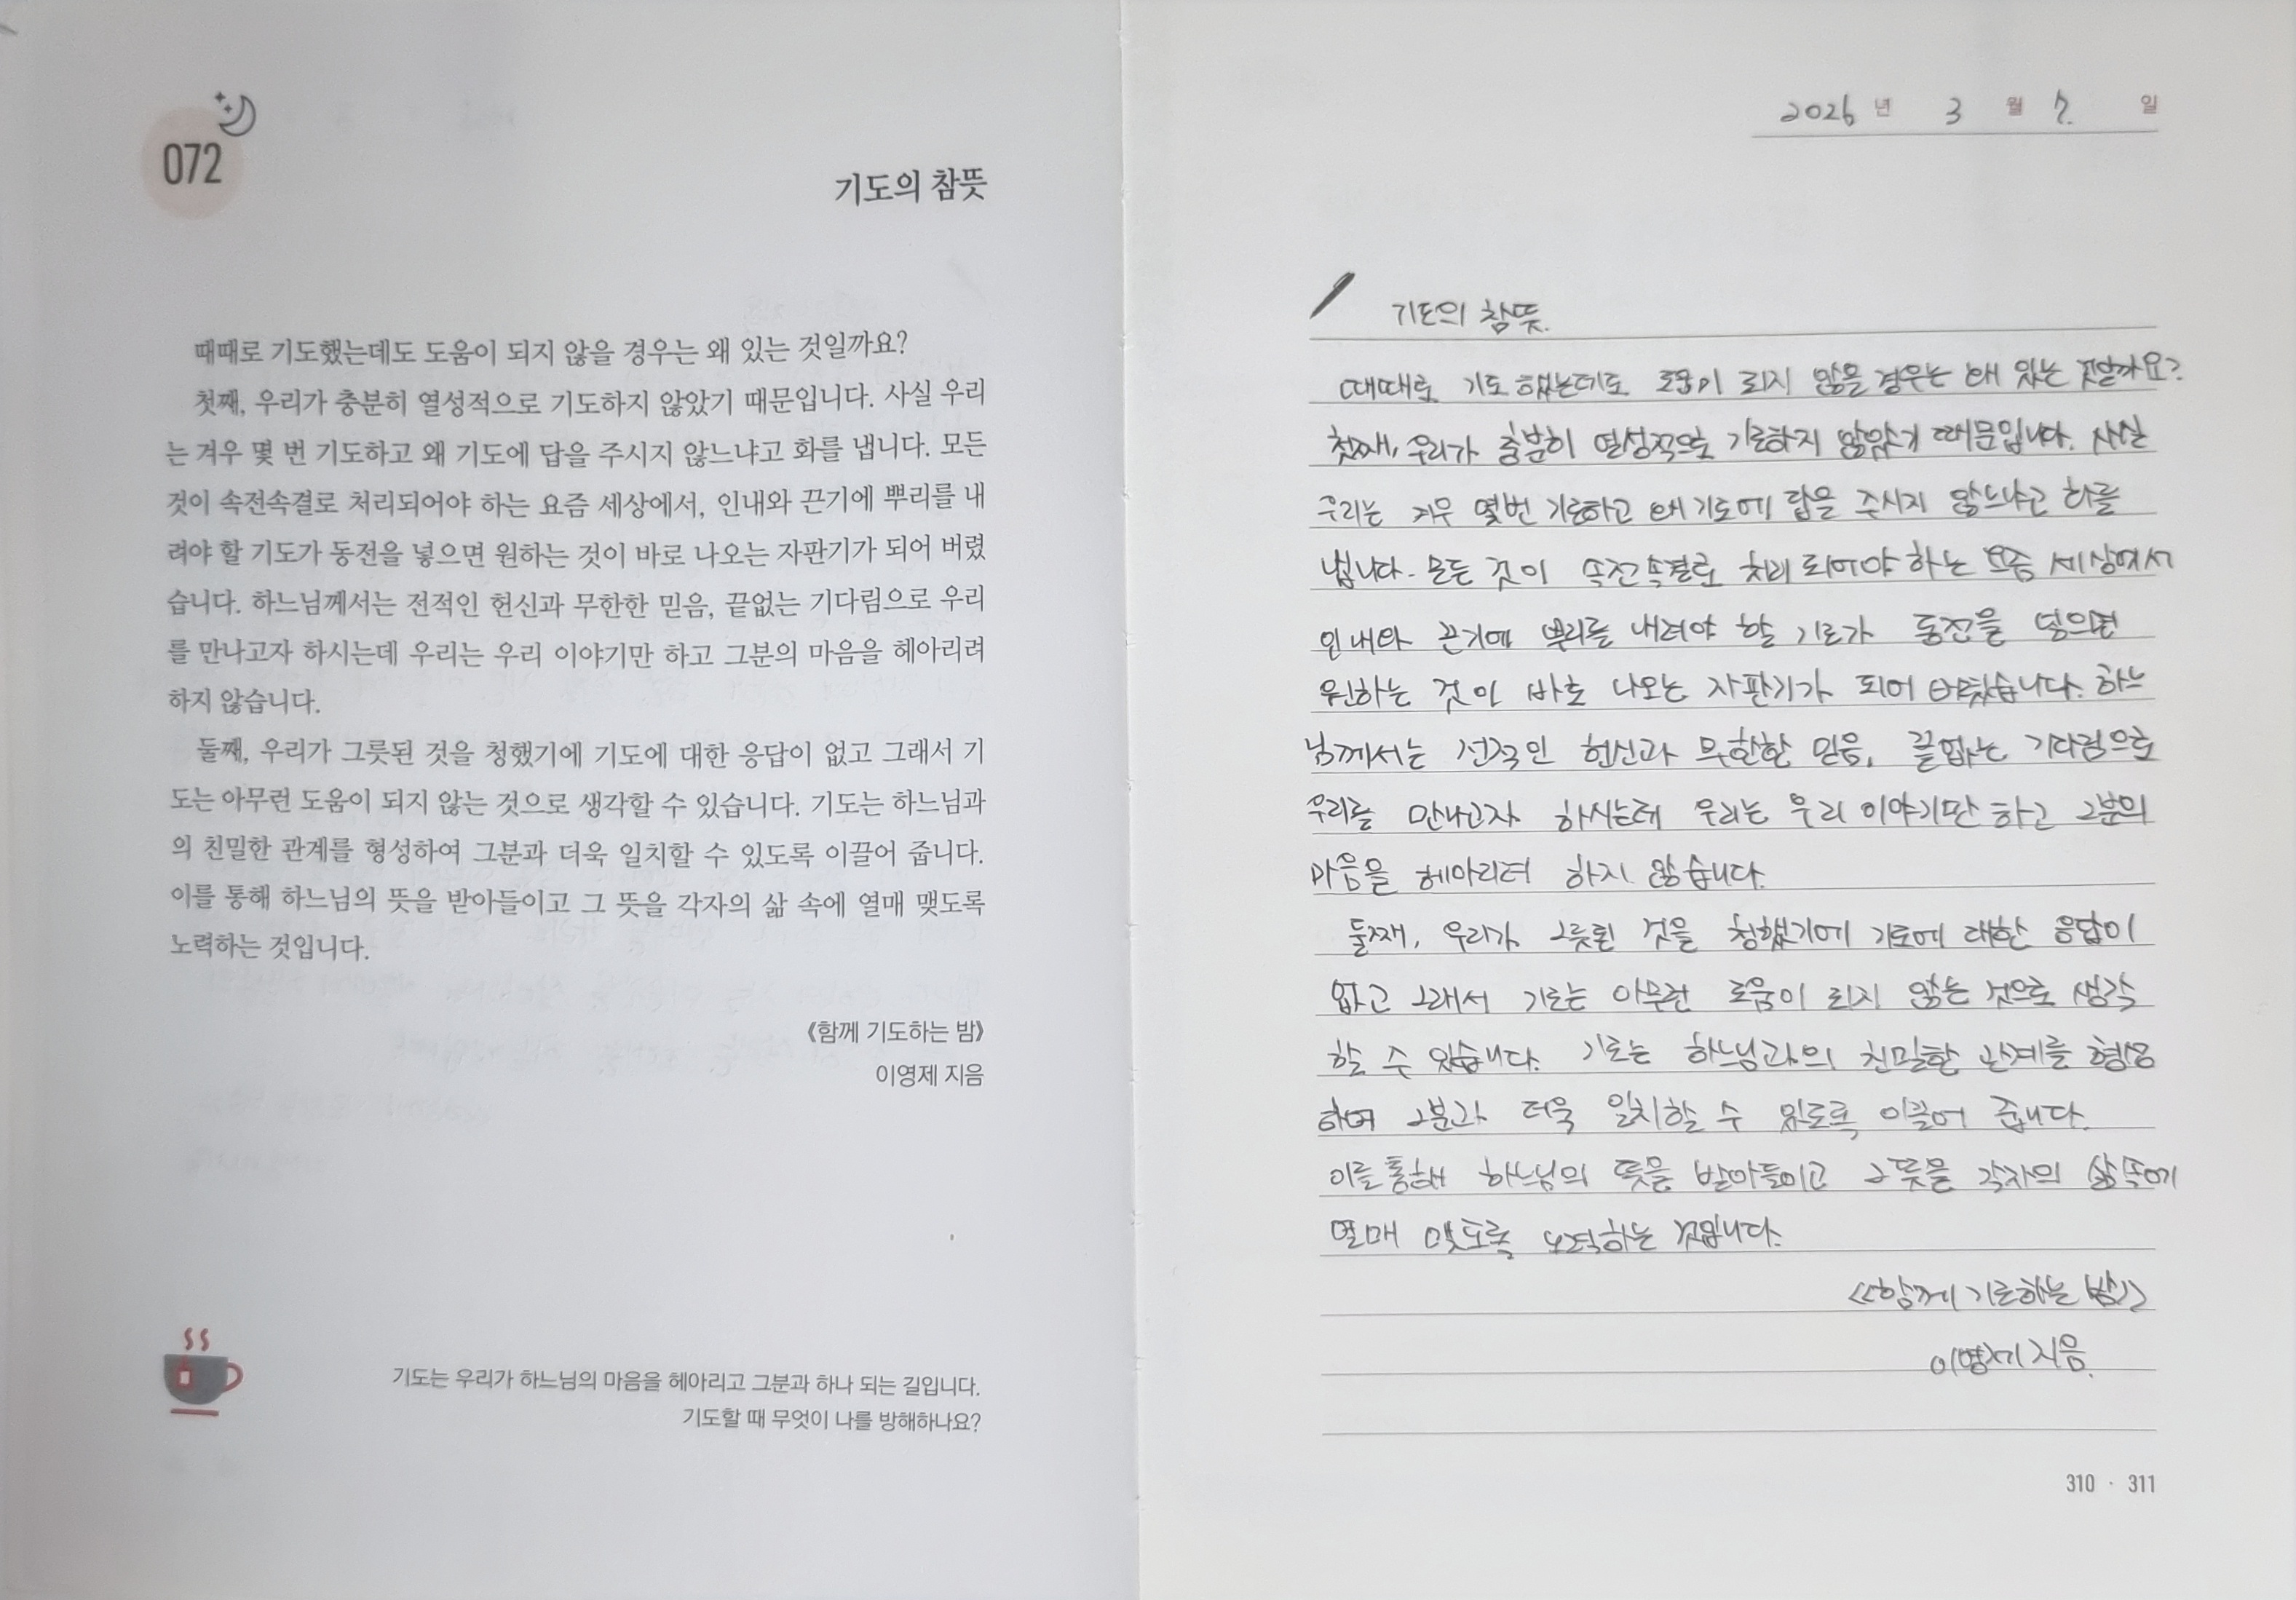 072
기도의 참뜻
때때로 기도했는데도 도움이 되지 않을 경우는 왜 있는 것일까요?
첫째, 우리가 충분히 열성적으로 기도하지 않았기 때문입니다. 사실 우리
는 겨우 몇 번 기도하고 왜 기도에 답을 주시지 않느냐고 화를 냅니다. 모든
것이 속전속결로 처리되어야 하는 요즘 세상에서, 인내와 끈기에 뿌리를 내
려야 할 기도가 동전을 넣으면 원하는 것이 바로 나오는 자판기가 되어 버렸
습니다. 하느님께서는 전적인 헌신과 무한한 믿음, 끝없는 기다림으로 우리
를 만나고자 하시는데 우리는 우리 이야기만 하고 그분의 마음을 헤아리려
하지 않습니다.
둘째, 우리가 그릇된 것을 청했기에 기도에 대한 응답이 없고 그래서 기
도는 아무런 도움이 되지 않는 것으로 생각할 수 있습니다. 기도는 하느님과
의 친밀한 관계를 형성하여 그분과 더욱 일치할 수 있도록 이끌어 줍니다.
이를 통해 하느님의 뜻을 받아들이고 그 뜻을 각자의 삶 속에 열매 맺도록
노력하는 것입니다.
《함께 기도하는 밤》
이영제 지음
기도는 우리가 하느님의 마음을 헤아리고 그분과 하나 되는 길입니다.
기도할 때 무엇이 나를 방해하나요?
2026 년 3 월 7. 일
기도의 참뜻.
때때로 기도 했는데도 도움이 되지 않을 경우는 왜 있는 것일까요?
첫째, 우리가 충분히 열성적으로 기도하지 않았기 때문입니다. 사실
우리는 겨우 몇번 기도하고 왜 기도에 답을 주시지 않느냐고 화를
냅니다. 모든 것이 속전속결로 처리 되어야 하는 요즘 세상에서
인내와 끈기에 뿌리를 내려야 할 기도가 동전을 넣으면
원하는 것이 바로 나오는 자판기가 되어 버렸습니다. 하느
님께서는 전적인 헌신과 무한한 믿음, 끝없는 기다림으로
우리를 만나고자 하시는데 우리는 우리 이야기만 하고 그분의
마음을 헤아리려 하지 않습니다.
둘째, 우리가 그릇된 것을 청했기에 기도에 대한 응답이
없고 그래서 기도는 아무런 도움이 되지 않는 것으로 생각
할 수 있습니다. 기도는 하느님과의 친밀한 관계를 형성
하여 그분과 더욱 일치할 수 있도록 이끌어 줍니다.
이를 통해 하느님의 뜻을 받아들이고 그 뜻을 각자의 삶 속에
열매 맺도록 노력하는 것입니다.
《함께 기도하는 밤》
이영제 지음.
310 · 311